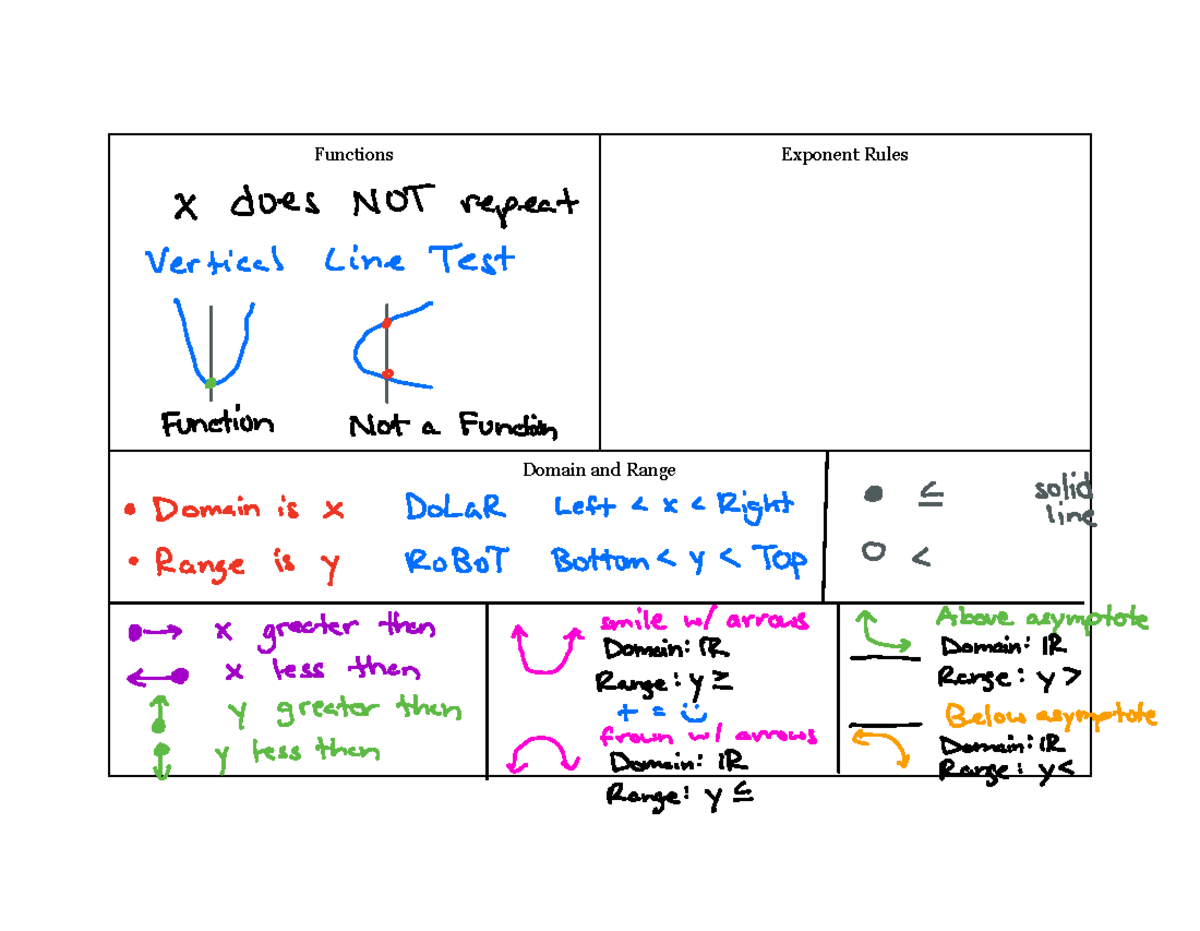 Functions
x does NOT repeat
Vertical Line Test
Function
Not a Function
Exponent Rules
Domain and Range
• Domain is x DoLaR Left < x < Right
• Range is y RoBoT Bottom < y < Top
● ≤ solid line
○ <
x greater then
x less then
y greater then
y less then
smile w/ arrows
Domain: ℝ
Range: y ≥
+ = ☺
frown w/ arrows
Domain: ℝ
Range: y ≤
Above asymptote
Domain: ℝ
Range: y >
Below asymptote
Domain: ℝ
Range: y <